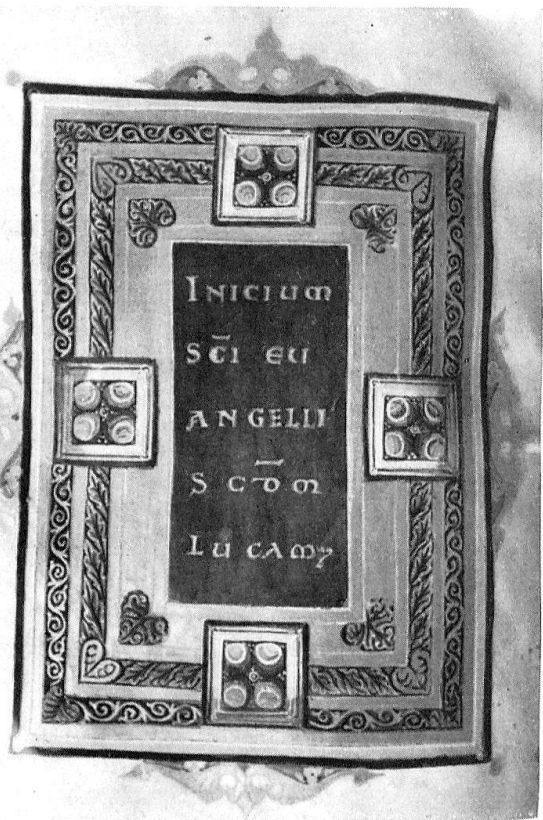 INICIUM
SC̄I EU
ANGELLI
S CD̄M
LUCAM